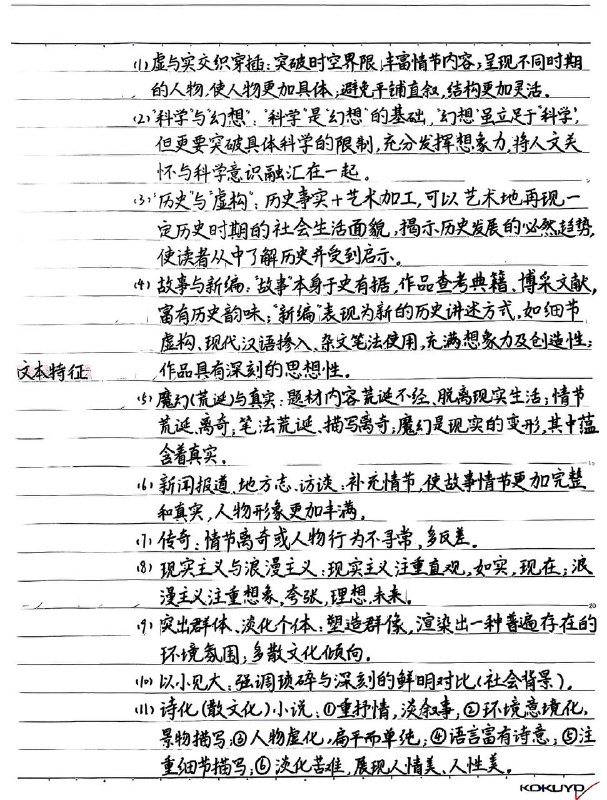 (1) 虚与实交织穿插：突破时空界限，丰富情节内容；呈现不同时期
的人物，使人物更加具体；避免平铺直叙，结构更加灵活。
(2)"科学"与"幻想"："科学"是"幻想"的基础，"幻想"虽立足于"科学"，
但更要突破具体科学的限制，充分发挥想象力，将人文关
怀与科学意识融汇在一起。
(3)"历史"与"虚构"：历史事实+艺术加工，可以艺术地再现一
定历史时期的社会生活面貌，揭示历史发展的必然趋势，
使读者从中了解历史并受到启示。
(4) 故事与新编："故事"本身于史有据，作品查考典籍、博采文献，
富有历史韵味；"新编"表现为新的历史讲述方式，如细节
虚构、现代汉语掺入、杂文笔法使用，充满想象力及创造性；
文本特征 作品具有深刻的思想性。
(5) 魔幻(荒诞)与真实：题材内容荒诞不经、脱离现实生活；情节
荒诞、离奇；笔法荒诞、描写离奇；魔幻是现实的变形，其中蕴
含着真实。
(6) 新闻报道、地方志、访谈：补充情节，使故事情节更加完整
和真实，人物形象更加丰满。
(7) 传奇：情节离奇或人物行为不寻常，多反差。
(8) 现实主义与浪漫主义：现实主义注重直观，如实，现在；浪
漫主义注重想象，夸张，理想，未来。
(9) 突出群体、淡化个体：塑造群像，渲染出一种普遍存在的
环境氛围；多散文化倾向。
(10) 以小见大：强调琐碎与深刻的鲜明对比(社会背景)。
(11) 诗化(散文化)小说：①重抒情，淡叙事；②环境意境化，
景物描写；③人物虚化，扁平而单纯；④语言富有诗意；⑤注
重细节描写；⑥淡化苦难，展现人情美、人性美。
KOKUYO